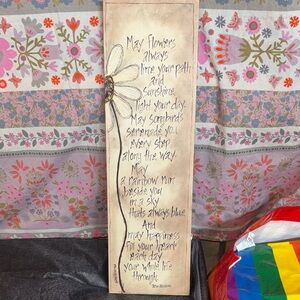 May flowers
always
line your path
and
sunshine
light your day.
May songbirds
serenade you
every step
along the way.
May
a rainbow run
beside you
in a sky
that's always blue.
And
may happiness
fill your heart
each day
your whole life
through.